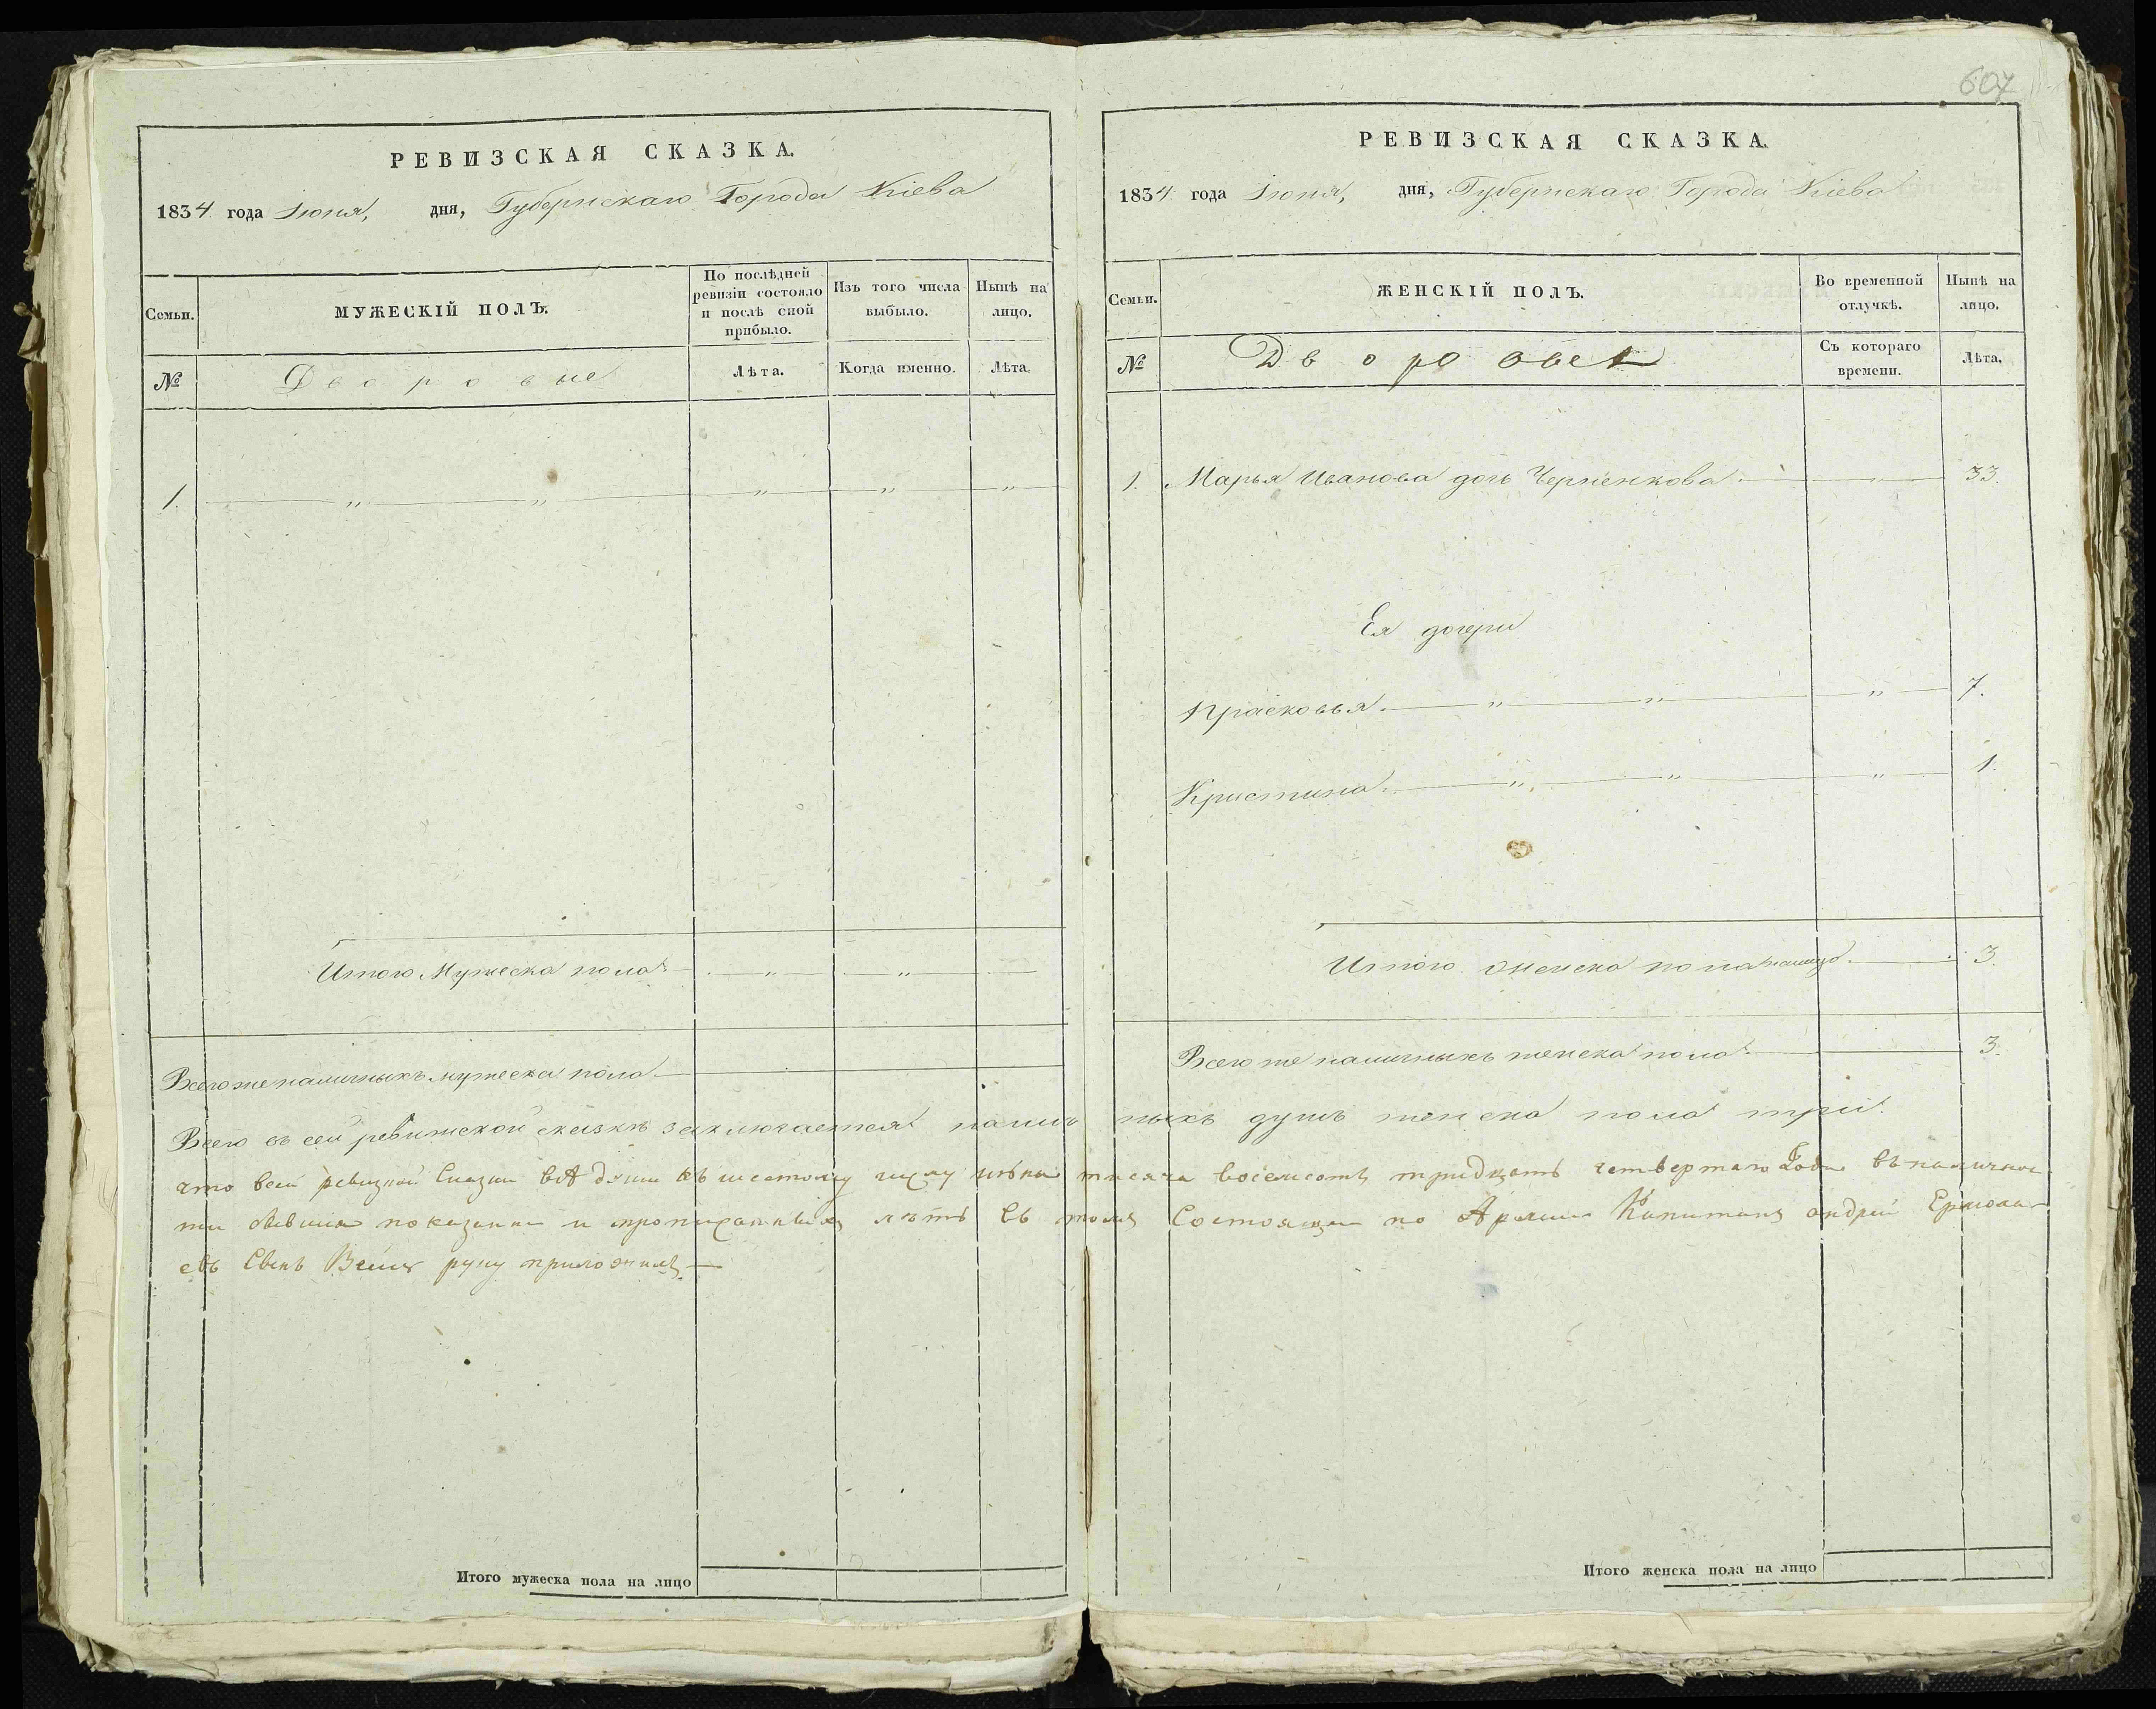 607
РЕВИЗСКАЯ СКАЗКА.
1834 года Іюня, дня, Губернскаго Города Кіева
Семьи.
МУЖЕСКІЙ ПОЛЪ.
По послѣдней ревизіи состояло и послѣ оной прибыло.
Изъ того числа выбыло.
Нынѣ на лицо.
№
Дворовые
Лѣта.
Когда именно.
Лѣта.
1. „ „ „ „ „
Итого Мужеска пола „ „
Всего же наличныхъ мужеска пола
РЕВИЗСКАЯ СКАЗКА.
1834 года Іюня, дня, Губернскаго Города Кіева
Семьи.
ЖЕНСКІЙ ПОЛЪ.
Во временной отлучкѣ.
Нынѣ на лицо.
№
Съ котораго времени.
Лѣта.
1. Марья Иванова дочь Черненкова „ 33.
Ея дочери
Прасковья „ „ „ 7.
Кристина „ „ „ 1.
Итого женска пола налицо 3.
Всего же наличныхъ женска пола 3.
Всего въ сей ревижской сказкѣ заключается наличныхъ душъ женска пола три.
что всей ревизкой Сказки къ шестому числу тисяча восемсотъ тридцать четвертаго Года въ налично
сти показани и лѣтъ въ томъ Состоящи по Арміи Капитанъ андрей Ермола
евъ Сынъ руку приложилъ
Итого мужеска пола на лицо
Итого женска пола на лицо